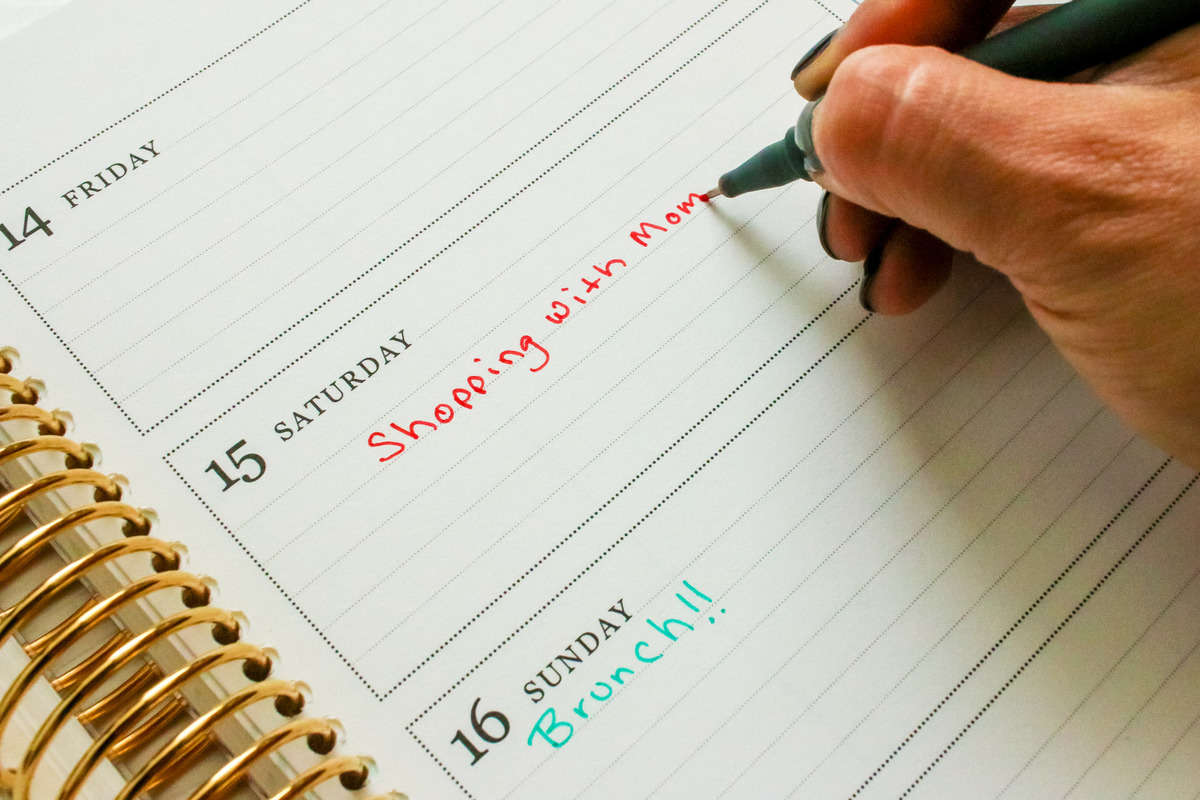 14 FRIDAY
15 SATURDAY
Shopping with Mom
16 SUNDAY
Brunch!!